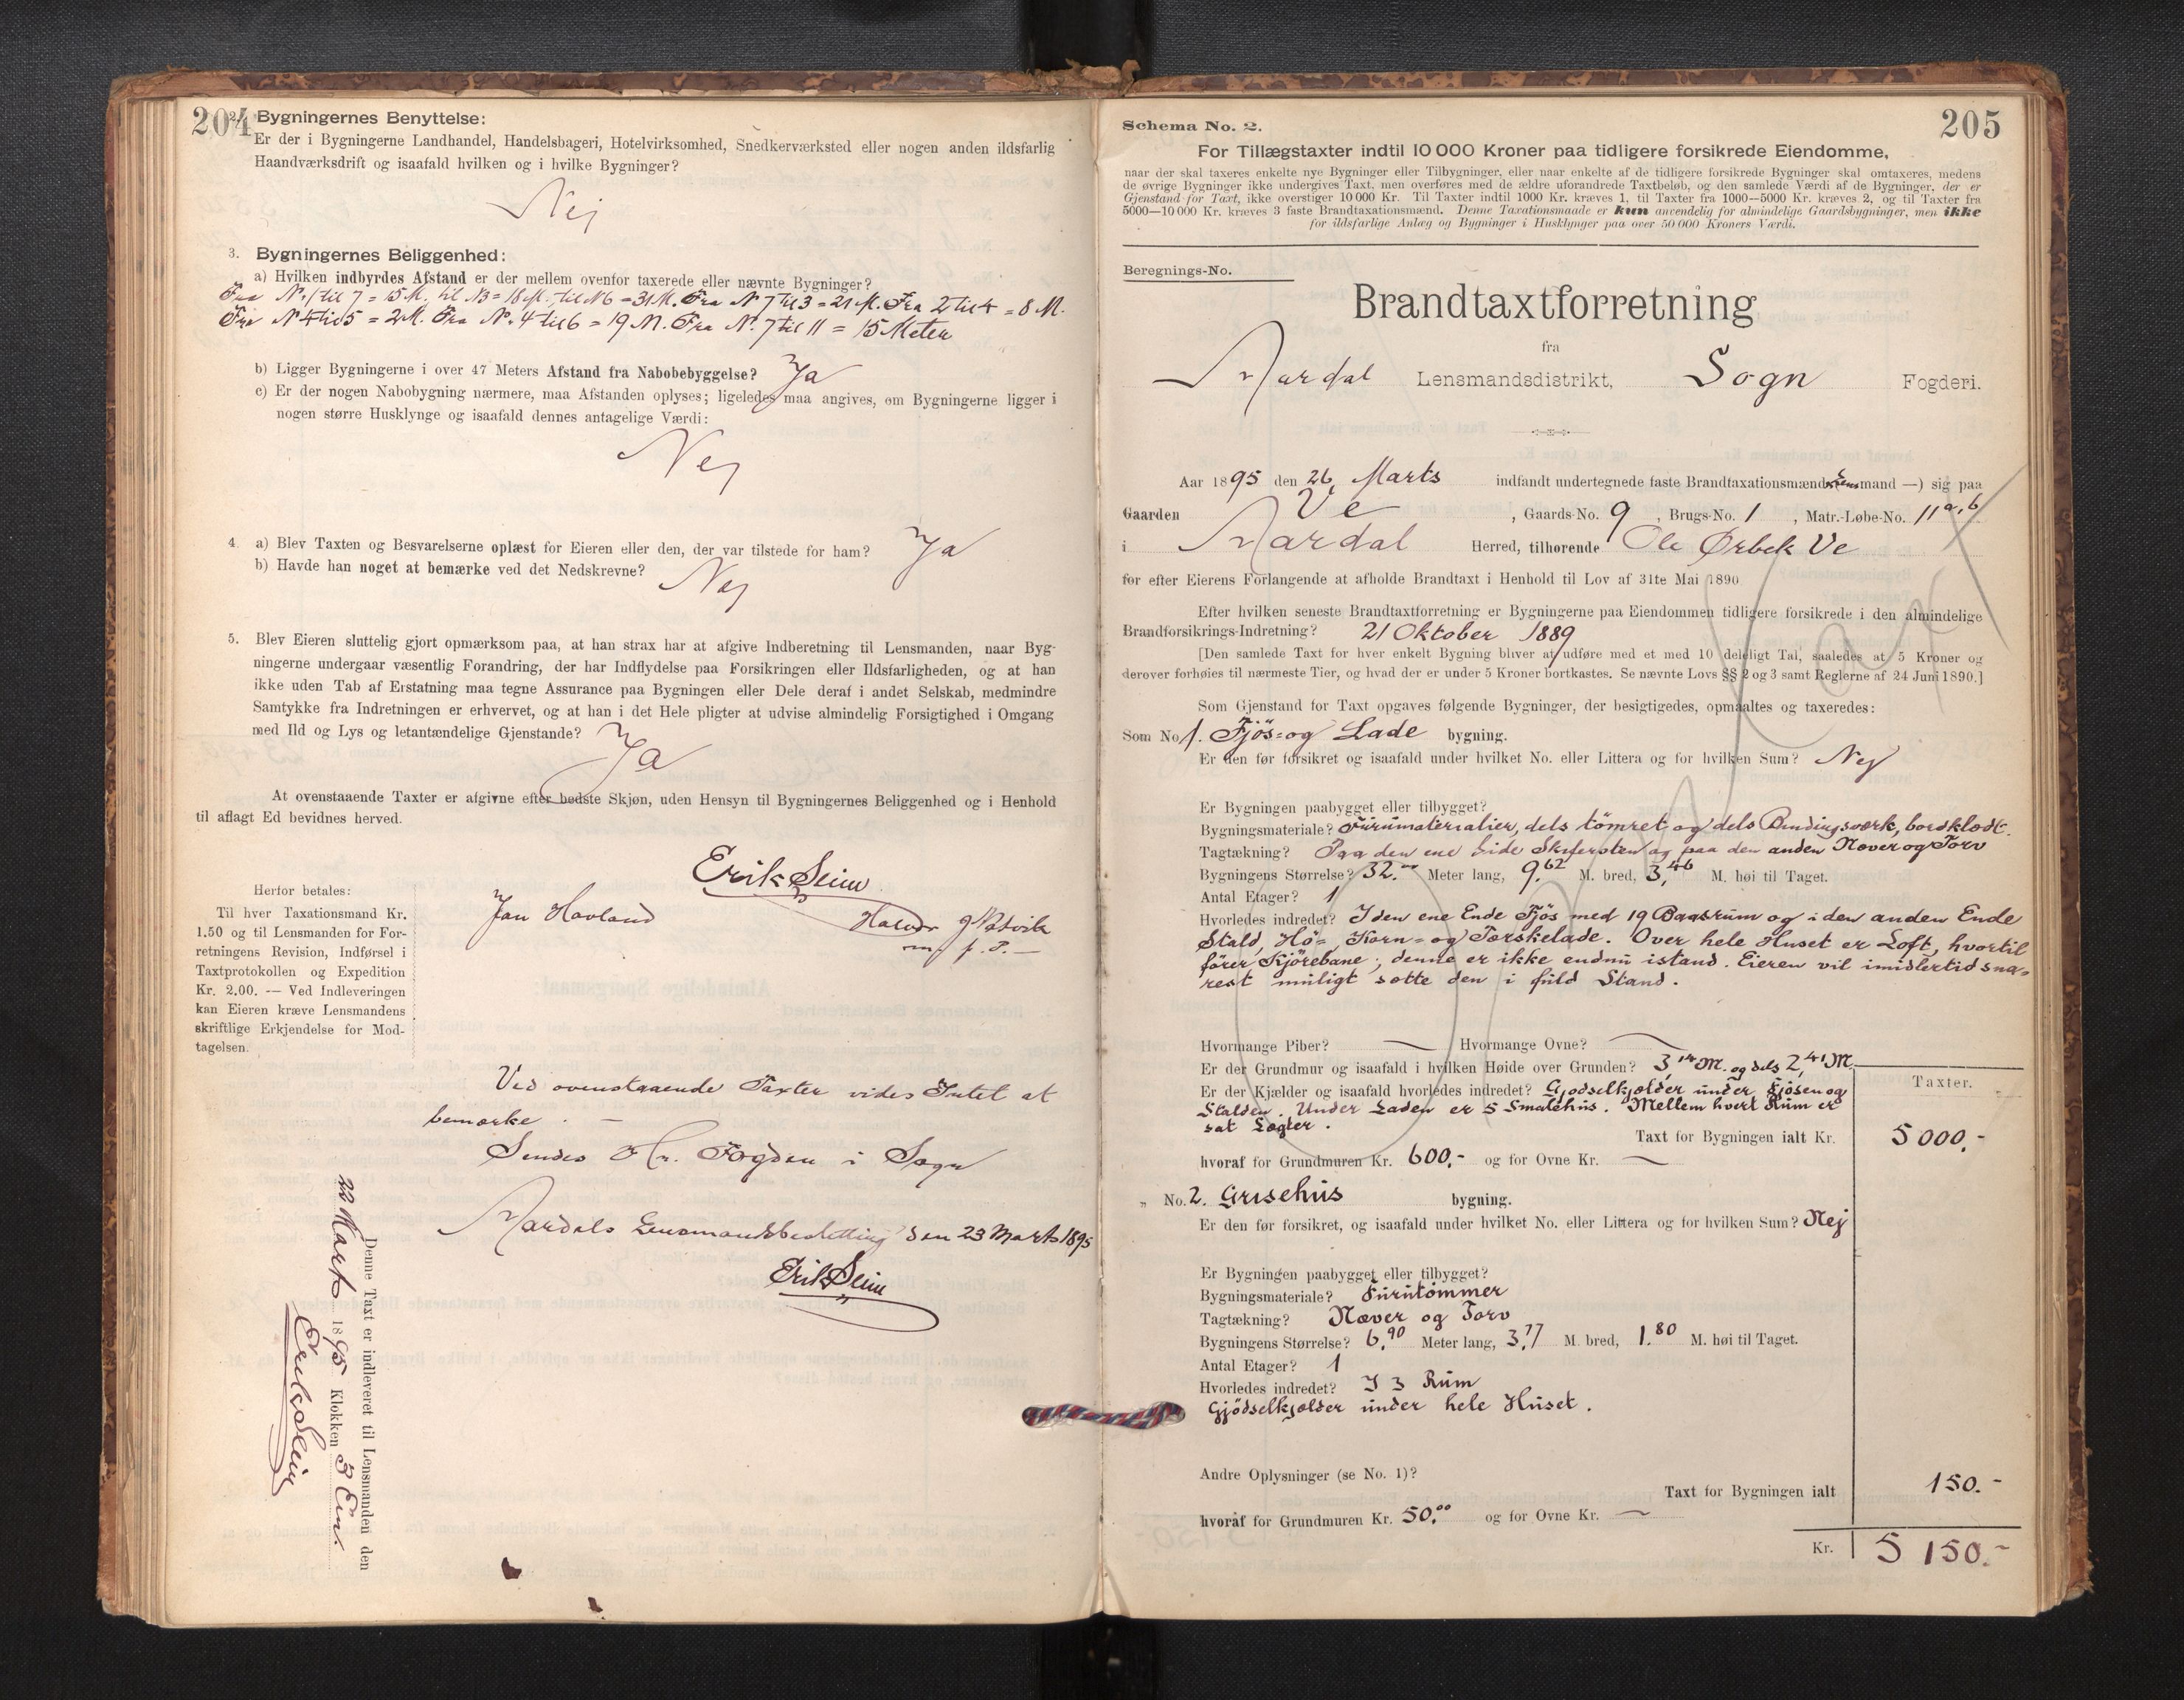 204
2. Bygningernes Benyttelse:
Er der i Bygningerne Landhandel, Handelsbageri, Hotelvirksomhed, Snedkerværksted eller nogen anden ildsfarlig
Haandværksdrift og isaafald hvilken og i hvilke Bygninger?
Nej
3. Bygningernes Beliggenhed:
a) Hvilken indbyrdes Afstand er der mellem ovenfor taxerede eller nævnte Bygninger?
Fra N. 1 til 7 = 15 M. til N3 = 18 M. til N6 = 31 M. Fra N 7 til 3 = 21 M. Fra 2 til 4 = 8 M.
Fra N 4 til 5 = 2 M. Fra N. 4 til 6 = 19 M. Fra N. 7 til 11 = 15 Meter
b) Ligger Bygningerne i over 47 Meters Afstand fra Nabobebyggelse? Ja
c) Er der nogen Nabobygning nærmere, maa Afstanden oplyses; ligeledes maa angives, om Bygningerne ligger i
nogen større Husklynge og isaafald dennes antagelige Værdi:
Nej
4. a) Blev Taxten og Besvarelserne oplæst for Eieren eller den, der var tilstede for ham? Ja
b) Havde han noget at bemærke ved det Nedskrevne? Nej
5. Blev Eieren sluttelig gjort opmærksom paa, at han strax har at afgive Indberetning til Lensmanden, naar Byg-
ningerne undergaar væsentlig Forandring, der har Indflydelse paa Forsikringen eller Ildsfarligheden, og at han
ikke uden Tab af Erstatning maa tegne Assurance paa Bygningen eller Dele deraf i andet Selskab, medmindre
Samtykke fra Indretningen er erhvervet, og at han i det Hele pligter at udvise almindelig Forsigtighed i Omgang
med Ild og Lys og letantændelige Gjenstande? Ja
At ovenstaaende Taxter er afgivne efter bedste Skjøn, uden Hensyn til Bygningernes Beliggenhed og i Henhold
til aflagt Ed bevidnes herved.
Erik Seim
Jan Hovland
Herfor betales:
Til hver Taxationsmand Kr.
1.50 og til Lensmanden for For-
retningens Revision, Indførsel i
Taxtprotokollen og Expedition
Kr. 2.00. — Ved Indleveringen
kan Eieren kræve Lensmandens
skriftlige Erkjendelse for Mod-
tagelsen.
Ved ovenstaaende Taxter vides Intet at
bemærke. —
Sendes Hr. Fogden i Sogn
Aardals Lensmandsbestilling den 23 Marts 1895
Erik Seim
Denne Taxt er indleveret til Lensmanden den
22 Marts 1895 Klokken 3 Em.
Erik Seim
205
Schema No. 2.
For Tillægstaxter indtil 10 000 Kroner paa tidligere forsikrede Eiendomme,
naar der skal taxeres enkelte nye Bygninger eller Tilbygninger, eller naar enkelte af de tidligere forsikrede Bygninger skal omtaxeres, medens
de øvrige Bygninger ikke undergives Taxt, men overføres med de ældre uforandrede Taxtbeløb, og den samlede Værdi af de Bygninger, der er
Gjenstand for Taxt, ikke overstiger 10 000 Kr. Til Taxter indtil 1000 Kr. kræves 1, til Taxter fra 1000—5000 Kr. kræves 2, og til Taxter fra
5000—10 000 Kr. kræves 3 faste Brandtaxationsmænd. Denne Taxationsmaade er kun anvendelig for almindelige Gaardsbygninger, men ikke
for ildsfarlige Anlæg og Bygninger i Husklynger paa over 50 000 Kroners Værdi.
Beregnings-No.
Brandtaxtforretning
fra
Aardal Lensmandsdistrikt, Sogn Fogderi.
Aar 1895 den 26. Marts indfandt undertegnede faste Brandtaxationsmænd Lensmand —) sig paa
Gaarden Ve, Gaards-No. 9, Brugs-No. 1, Matr.-Løbe-No. 11 a, b
i Aardal Herred, tilhørende Ole Ørbek Ve
for efter Eierens Forlangende at afholde Brandtaxt i Henhold til Lov af 31te Mai 1890
Efter hvilken seneste Brandtaxtforretning er Bygningerne paa Eiendommen tidligere forsikrede i den almindelige
Brandforsikrings-Indretning? 21 Oktober 1889
[Den samlede Taxt for hver enkelt Bygning bliver at udføre med et med 10 deleligt Tal, saaledes at 5 Kroner og
derover forhøies til nærmeste Tier, og hvad der er under 5 Kroner bortkastes. Se nævnte Lovs §§ 2 og 3 samt Reglerne af 24 Juni 1890.]
Som Gjenstand for Taxt opgaves følgende Bygninger, der besigtigedes, opmaaltes og taxeredes:
Som No. 1. Fjös- og Lade bygning.
Er den før forsikret og isaafald under hvilket No. eller Littera og for hvilken Sum? Nej
Er Bygningen paabygget eller tilbygget?
Bygningsmateriale? Furumaterialier, dels tömret og dels Bindingsværk, bordklædt.
Tagtækning? Paa den ene Side Skifersten og paa den anden Næver og Torv
Bygningens Størrelse? 32. Meter lang, 9,62 M. bred, 3,46 M. høi til Taget.
Antal Etager? 1
Hvorledes indredet? I den ene Ende Fjös med 19 Baasrum og i den anden Ende
Stald, Hö-, Korn- og Tærskelade. Over hele Huset er Loft, hvortil
förer Kjörebane; denne er ikke endnu istand. Eieren vil imidlertid sna-
rest muligt sætte den i fuld Stand.
Hvormange Piber? — Hvormange Ovne? —
Er der Grundmur og isaafald i hvilken Høide over Grunden? 3,14 M. og dels 2,41 M.
Taxter.
Er der Kjælder og isaafald hvorledes indredet? Gjödselkjælder under Fjösen og
Stalden. Under Laden er 5 Smalehus. Mellem hvert Rum er
sat Lægter.
Taxt for Bygningen ialt Kr. 5000,-
hvoraf for Grundmuren Kr. 600,- og for Ovne Kr. —
„ No. 2. Grisehus bygning.
Er den før forsikret, og isaafald under hvilket No. eller Littera og for hvilken Sum? Nej
Er Bygningen paabygget eller tilbygget?
Bygningsmateriale? Furutömmer
Tagtækning? Næver og Torv
Bygningens Størrelse? 6,90 Meter lang, 3,77 M. bred, 1.80 M. høi til Taget.
Antal Etager? 1
Hvorledes indredet? I 3 Rum
Gjödselkjælder under hele Huset.
Andre Oplysninger (se No. 1)?
Taxt for Bygningen ialt 150.-
hvoraf for Grundmuren Kr. 50.00 og for Ovne Kr. —
Kr. 5150.-